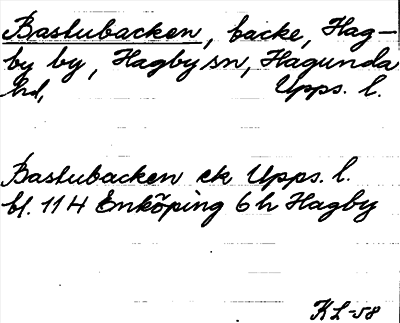 Bastubacken, backe, Hag-
by by, Hagby sn, Hagunda
hd, Upps. l.
Bastubacken ek Upps. l.
bl. 11 H Enköping 6 h Hagby
KL-58